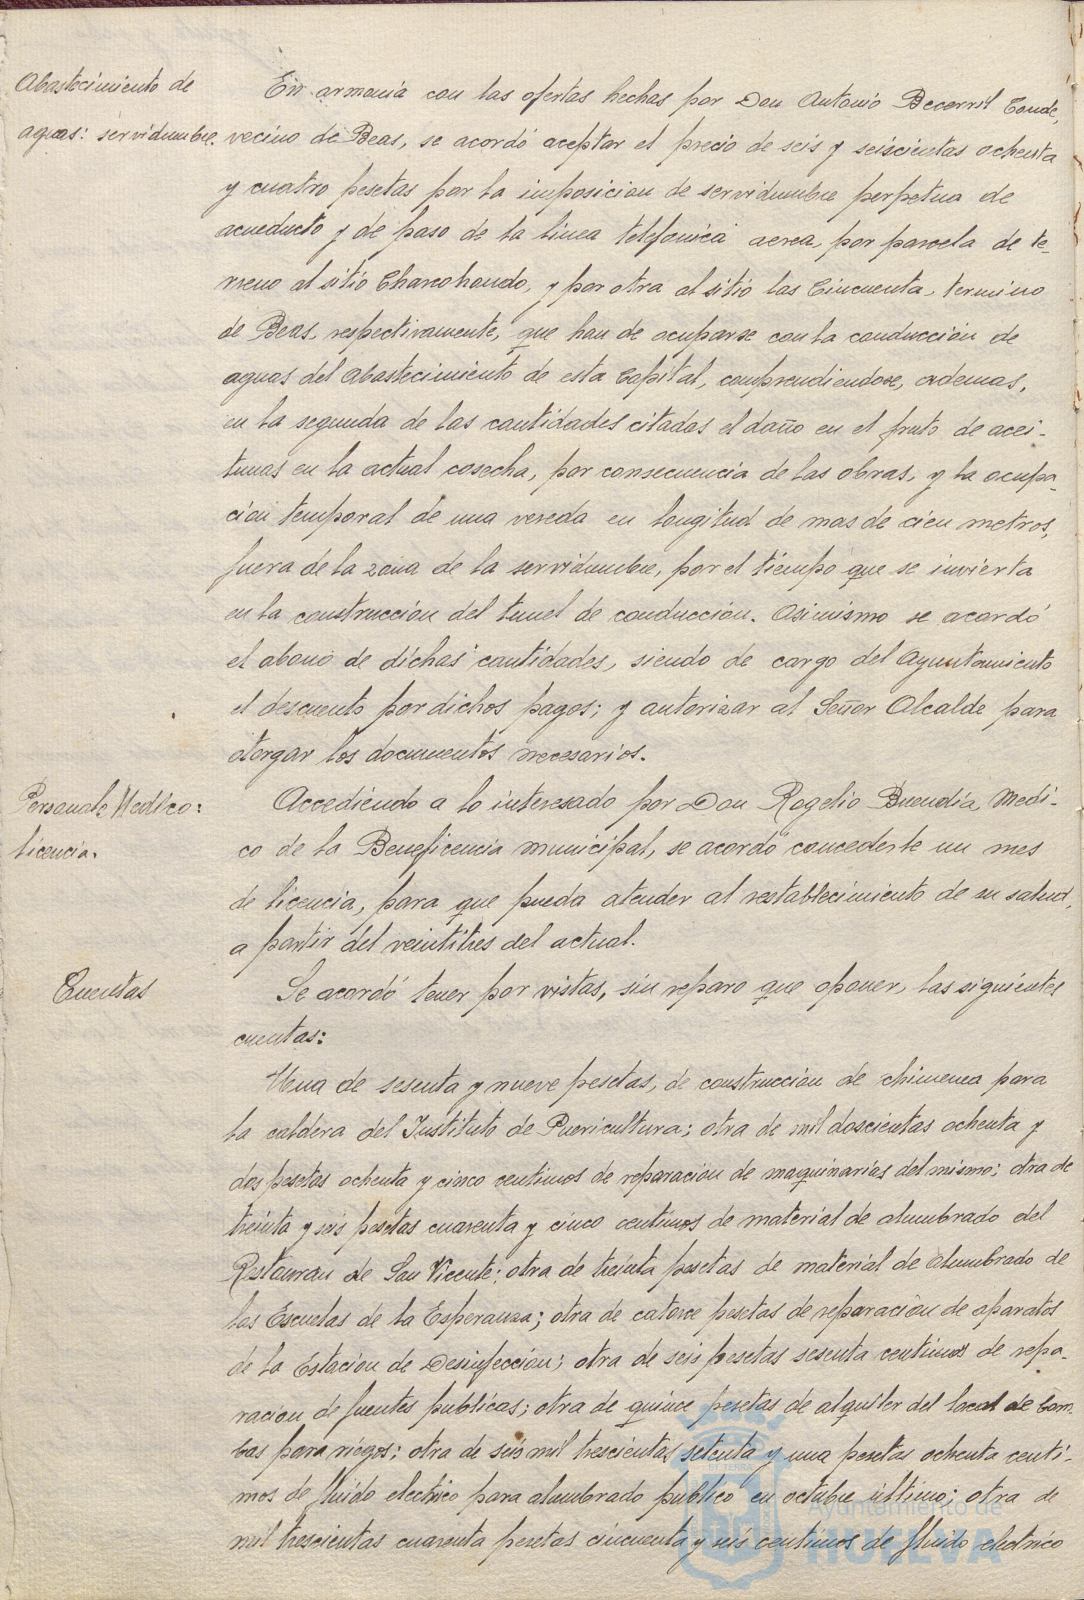 Abastecimiento de
aguas: servidumbre.
En armonia con las ofertas hechas por Don Antonio Becerril Conde,
vecino de Beas, se acordó aceptar el precio de seis y seiscientas ochenta
y cuatro pesetas por la imposicion de servidumbre perpetua de
acueducto y de paso de la linea telefonica aerea, por parcela de te-
rreno al sitio Charcohondo, y por otra al sitio las Cincuenta, termino
de Beas, respectivamente, que han de ocuparse con la conducción de
aguas del abastecimiento de esta Capital, comprendiendose, ademas,
en la segunda de las cantidades citadas el daño en el fruto de acei-
tunas en la actual cosecha, por consecuencia de las obras, y la ocupa-
ción temporal de una vereda en longitud de mas de cien metros,
fuera de la zona de la servidumbre, por el tiempo que se invierta
en la construccion del tunel de conduccion. Asimismo se acordó
el abono de dichas cantidades, siendo de cargo del Ayuntamiento
el descuento por dichos pagos; y autorizar al Señor Alcalde para
otorgar los documentos necesarios.
Personal Medico:
licencia.
Accediendo a lo interesado por Don Rogelio Buendia, Medi-
co de la Beneficencia municipal, se acordó concederle un mes
de licencia, para que pueda atender al restablecimiento de su salud,
a partir del veintitres del actual.
Cuentas
Se acordó tener por vistas, sin reparo que oponer, las siguientes
cuentas:
Una de sesenta y nueve pesetas, de construccion de chimenea para
la caldera del Instituto de Puericultura; otra de mil doscientas ochenta y
dos pesetas ochenta y cinco centimos de reparacion de maquinarias del mismo; otra de
treinta y seis pesetas cuarenta y cinco centimos de material de alumbrado del
Restauran de San Vicente; otra de treinta pesetas de material de alumbrado de
las Escuelas de la Esperanza; otra de catorce pesetas de reparacion de aparatos
de la Estacion de Desinfeccion; otra de seis pesetas sesenta centimos de repa-
racion de fuentes publicas; otra de quince pesetas de alquiler del local de bom-
bas para riegos; otra de seis mil trescientas setenta y una pesetas ochenta centi-
mos de fluido electrico para alumbrado publico en octubre ultimo; otra de
mil trescientas cuarenta pesetas cincuenta y seis centimos de fluido electrico
Ayuntamiento de
HUELVA